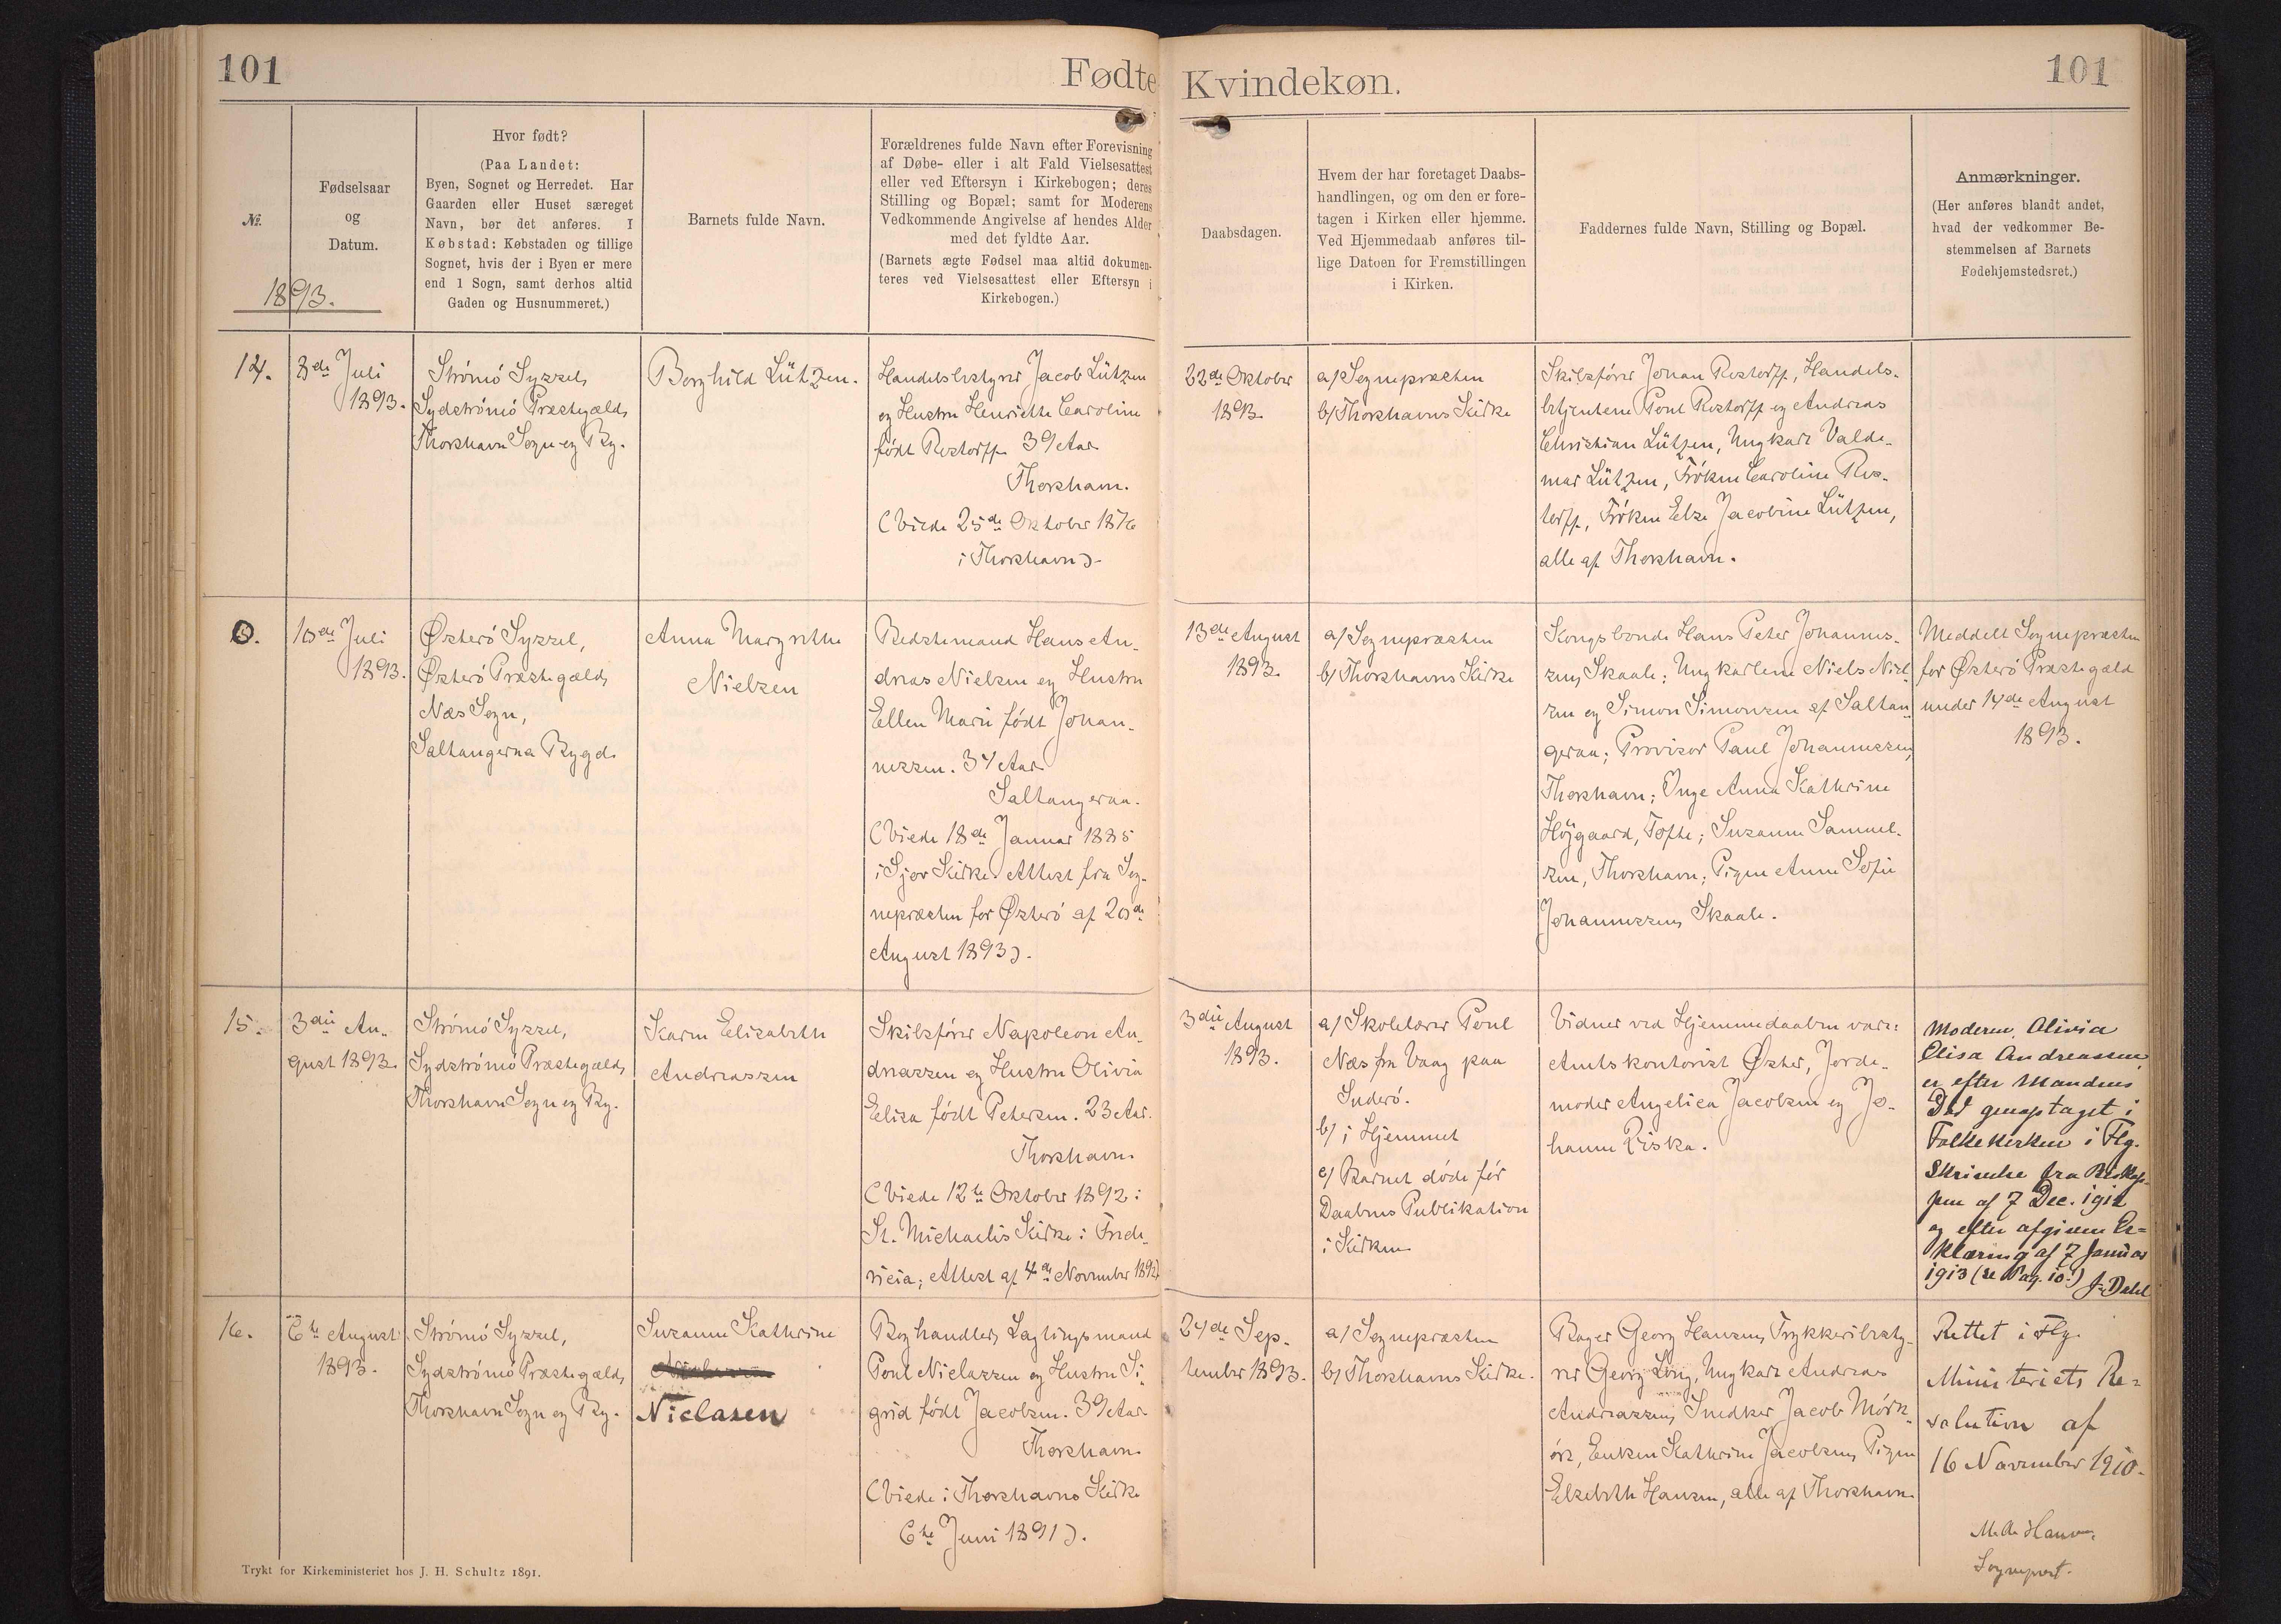 101
Fødte
Kvindekøn.
101
№
1893.
Fødselsaar
og
Datum.
Hvor født?
(Paa Landet:
Byen, Sognet og Herredet. Har
Gaarden eller Huset særeget
Navn, bør det anføres. I
Købstad: Købstaden og tillige
Sognet, hvis der i Byen er mere
end 1 Sogn, samt derhos altid
Gaden og Husnummeret.)
Barnets fulde Navn.
Forældrenes fulde Navn efter Forevisning
af Døbe- eller i alt Fald Vielsesattest
eller ved Eftersyn i Kirkebogen; deres
Stilling og Bopæl; samt for Moderens
Vedkommende Angivelse af hendes Alder
med det fyldte Aar.
(Barnets ægte Fødsel maa altid dokumen-
teres ved Vielsesattest eller Eftersyn i
Kirkebogen.)
Daabsdagen.
Hvem der har foretaget Daabs-
handlingen, og om den er fore-
tagen i Kirken eller hjemme.
Ved Hjemmedaab anføres til-
lige Datoen for Fremstillingen
i Kirken.
Faddernes fulde Navn, Stilling og Bopæl.
Anmærkninger.
(Her anføres blandt andet,
hvad der vedkommer Be-
stemmelsen af Barnets
Fødehjemstedsret.)
14.
8de Juli
1893.
Strömö Syssel,
Sydströmö Præstegæld,
Thorshavn Sogn og By.
Borghild Lützen.
Handelsbestyrer Jacob Lützen
og Hustru Henriette Caroline
født Restorff. 39 Aar
Thorshavn.
(Viede 25de Oktober 1876
i Thorshavn).
22de Oktober
1893.
a/ Sognepræsten
b/ Thorshavns Kirke
Skibsfører Johan Restorff, Handels-
betjentene Poul Restorff og Andreas
Christian Lützen, Ungkarl Valde-
mar Lützen, Frøken Caroline Res-
torff, Frøken Else Jacobine Lützen,
alle af Thorshavn.
0.
10de Juli
1893.
Østerö Syssel,
Østerö Præstegæld,
Næs Sogn,
Saltangerna Bygd.
Anna Margrethe
Nielsen
Bedstemand Hans An-
dreas Nielsen og Hustru
Ellen Marie født Johan-
nessen. 34 Aar
Saltangeraa.
(Viede 18de Januar 1885
i Sjov Kirke. Attest fra Sog-
nepræsten for Østerö af 20de
August 1893).
13de August
1893.
a/ Sognepræsten
b/ Thorshavns Kirke
Kongsbonde Hans Peter Johannes-
sen, Skaale; Ungkarlene Niels Niel-
sen og Simon Simonsen af Saltan-
geraa; Provisor Paul Johannessen,
Thorshavn; Pige Anna Kathrine
Højgaard, Tofte; Susanne Samuel-
sen, Thorshavn; Pigen Anne Sofie
Johannessen, Skaale.
Meddelt Sognepræsten
for Østerö Præstegæld
under 14de August
1893.
15.
3die Au-
gust 1893.
Strömö Syssel,
Sydströmö Præstegæld,
Thorshavn Sogn og By.
Karen Elisabeth
Andreassen
Skibsfører Napoleon An-
dreassen og Hustru Olivia
Elisa født Petersen. 23 Aar.
Thorshavn.
(Viede 12te Oktober 1892 i
St. Michaelis Kirke i Frede-
ricia; Attest af 4de November 1892)
3die August
1893.
a/ Skolelærer Poul
Næs fra Vaag paa
Suderö.
b/ i Hjemmet
c/ Barnet døde før
Daabens Publikation
i Kirken.
Vidner ved Hjemmedaaben vare:
Amtskontorist Øster, Jorde-
moder Angelica Jacobsen og Jo-
hanne Ziska.
Moderen Olivia
Elisa Andreassen
er efter Mandens
Død genoptaget i
Folkekirken i Flg.
Skrivelse fra Biskop-
pen af 7 Dec. 1912
og efter afgiven Er-
klæring af 7 Januar
1913 (se Pag. 10.) J. Dahl
16.
6te August
1893.
Strömö Syssel,
Sydströmö Præstegæld,
Thorshavn Sogn og By.
Susanne Kathrine
Niclasen
Boghandler, Lagtingsmand
Poul Niclassen og Hustru Si-
grid født Jacobsen. 39 Aar
Thorshavn.
(Viede i Thorshavns Kirke
6te Juni 1891).
24de Sep-
tember 1893.
a/ Sognepræsten
b/ Thorshavns Kirke.
Bager Georg Hansen, Trykkeribesty-
rer Georg Long, Ungkarl Andreas
Andreassen, Snedker Jacob Mörk-
öre, Enken Kathrine Jacobsen, Pigen
Elsebeth Hansen, alle af Thorshavn.
Rettet i Flg.
Ministeriets Re-
solution af
16 November 1910.
Sognepræst.
Trykt for Kirkeministeriet hos J. H. Schultz 1891.